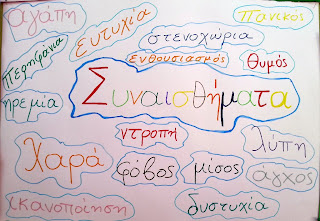 αγάπη
Ευτυχία
Πανικός
στενοχώρια
Περηφάνια
Ενθουσιασμός
Θυμός
ηρεμία
Συναισθήματα
ντροπή
λύπη
Χαρά
φόβος
μίσος
άγχος
ικανοποίηση
δυστυχία